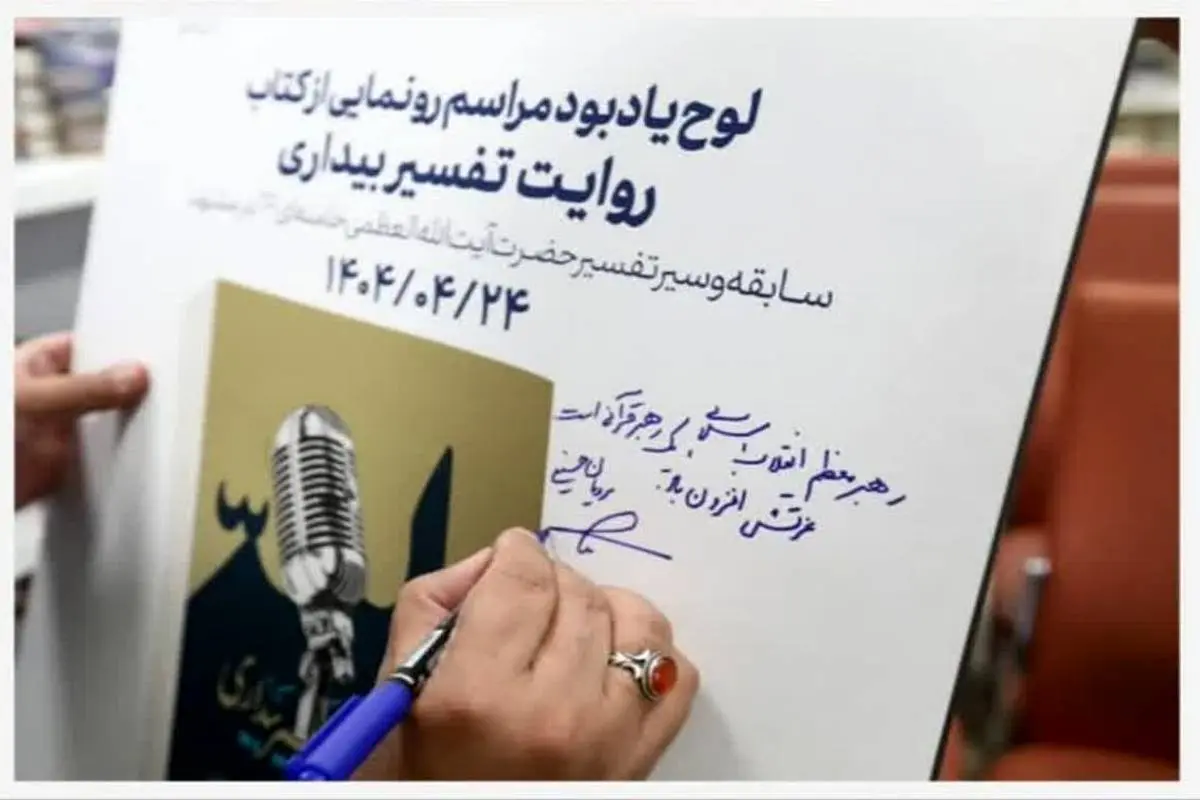 لوح یادبود مراسم رونمایی از کتاب
روایت تفسیر بیداری
سابقه و سیر تفسیر حضرت آیت‌الله العظمی خامنه‌ای در مشهد
۱۴۰۴/۰۴/۲۴
رهبر معظم انقلاب اسلامی رهبر قرآنی است
عزتش افزون باد
بیداری